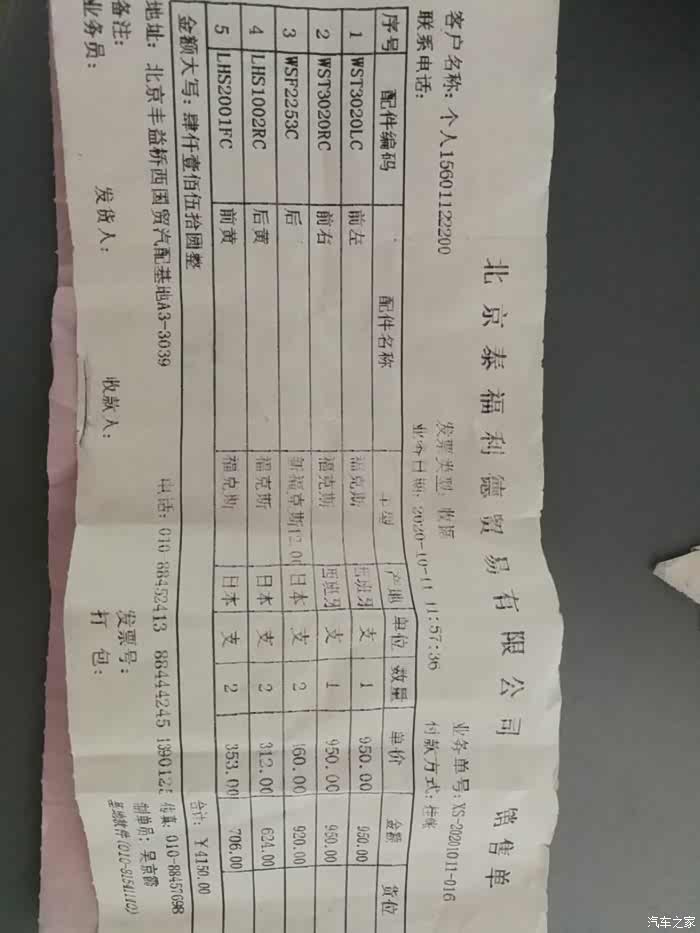 北京泰福利德贸易有限公司 销售单
业务单号: XS-20201011-016
客户名称: 个人15601122200 发票类型: 收据 付款方式: 挂账
联系电话: 业务日期: 2020-10-11 11:57:36
序号 配件编码 配件名称 车型 产地 单位 数量 单价 金额 货位
1 WST3020LC 前左 福克斯 西班牙 支 1 950.00 950.00
2 WST3020RC 前右 福克斯 西班牙 支 1 950.00 950.00
3 WSF2253C 后 新福克斯12.00 日本 支 2 460.00 920.00
4 LHS1002RC 后黄 福克斯 日本 支 2 312.00 624.00
5 LHS2001FC 前黄 福克斯 日本 支 2 353.00 706.00
金额大写: 肆仟壹佰伍拾圆整 合计: ¥4150.00
地址: 北京丰益桥西国贸汽配基地A3-3039 电话: 010-88452413 88444245 139012 传真: 010-88457698
备注: 发票号: 制单员: 吴京霞
业务员: 发货人: 收款人: 打包:
汽车之家